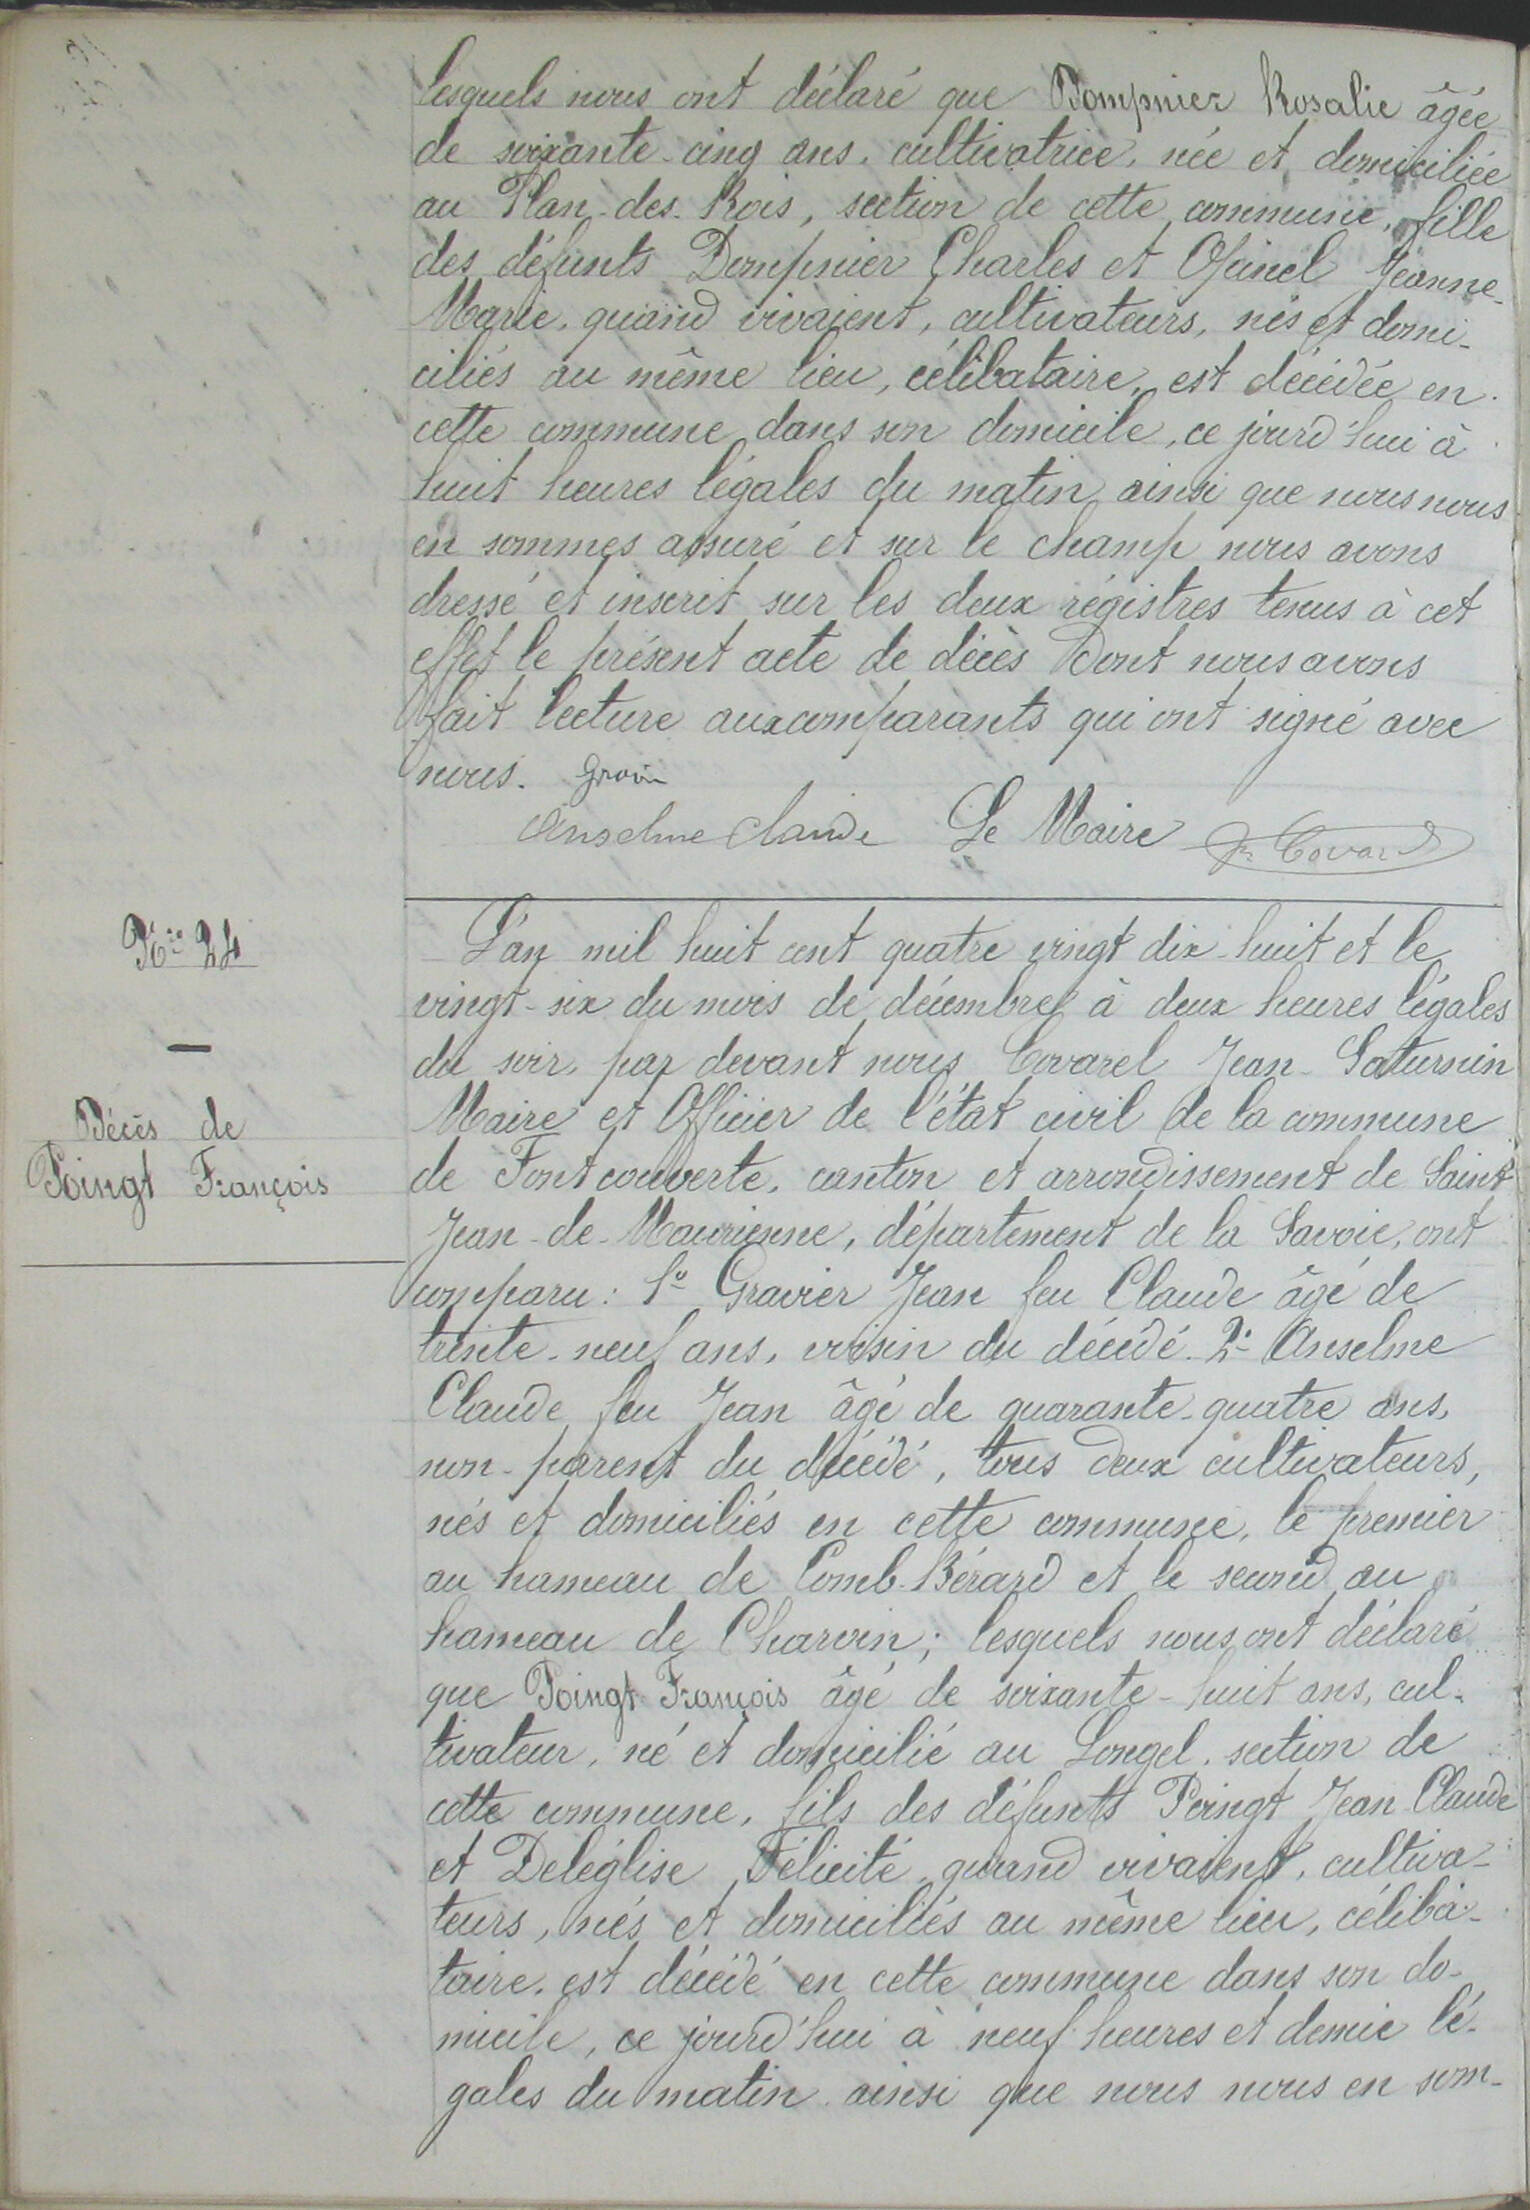 lesquels nous ont déclaré que Dompnier Rosalie âgée
de soixante-cinq ans. cultivatrice, née et domiciliée
au Plan-des-Rois, section de cette commune, fille
des défunts Dompnier Charles et Ofinel Jeanne-
Marie, quand vivaient, cultivateurs, nés et domi-
ciliés au même lieu, célibataire, est décédée en
cette commune dans son domicile, ce jourd'hui à
huit heures légales du matin ainsi que nous nous
en sommes assuré et sur le champ nous avons
dressé et inscrit sur les deux régistres tenus à cet
effet le présent acte de décès dont nous avons
fait lecture aux comparants qui ont signé avec
nous.
Anselme Claude Le Maire
Nº 24
Décès de
Poingt François
L'an mil huit cent quatre vingt dix-huit et le
vingt-six du mois de décembre à deux heures légales
du soir, par devant nous Covarel Jean-Saturnin
Maire et Officier de l'état civil de la commune
de Fontcouverte, canton et arrondissement de Saint
Jean-de-Maurienne, département de la Savoie, ont
comparu: 1º Gravier Jean feu Claude âgé de
trente-neuf ans, voisin du décédé. 2º Anselme
Claude feu Jean âgé de quarante-quatre ans,
non-parent du décédé, tous deux cultivateurs,
nés et domiciliés en cette commune, le premier
au hameau de Comb-Bérard et le second au
hameau de Charvin; lesquels nous ont déclaré
que Poingt François âgé de soixante-huit ans, cul-
tivateur, né et domicilié au Longel, section de
cette commune, fils des défunts Poingt Jean-Claude
et Deléglise Félicité, quand vivaient, cultiva-
teurs, nés et domiciliés au même lieu, céliba-
taire, est décédé en cette commune dans son do-
micile, ce jourd'hui à neuf heures et demie lé-
gales du matin ainsi que nous nous en som-